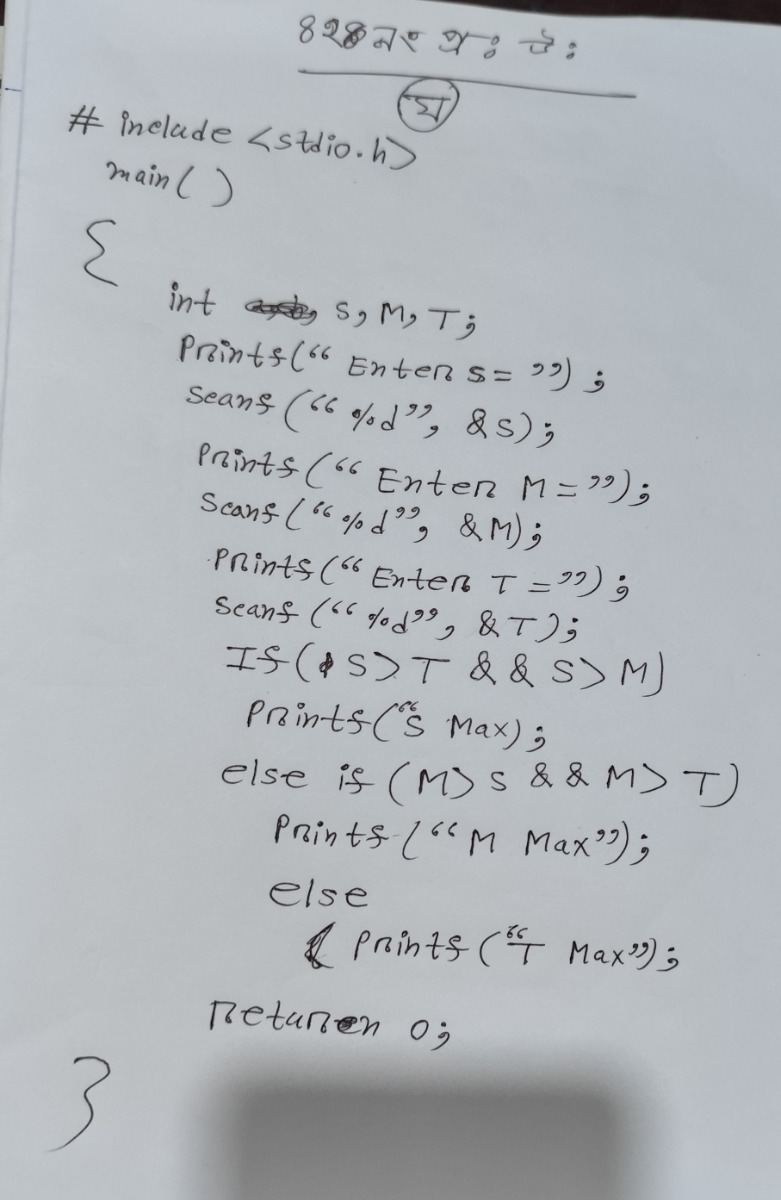 ৪২৪নং প্রঃ উঃ
ঘ
# include <stdio.h>
main()
{
int S, M, T;
Printf(“ Enter S= ”);
Scanf (“ %d”, &S);
Printf (“ Enter M = ”);
Scanf (“ %d”, &M);
Printf (“ Enter T = ”);
Scanf (“ %d”, &T);
If ( S>T && S>M)
Printf(“S Max);
else if (M>S && M>T)
Printf (“ M Max”);
else
Printf (“T Max”);
Return 0;
}